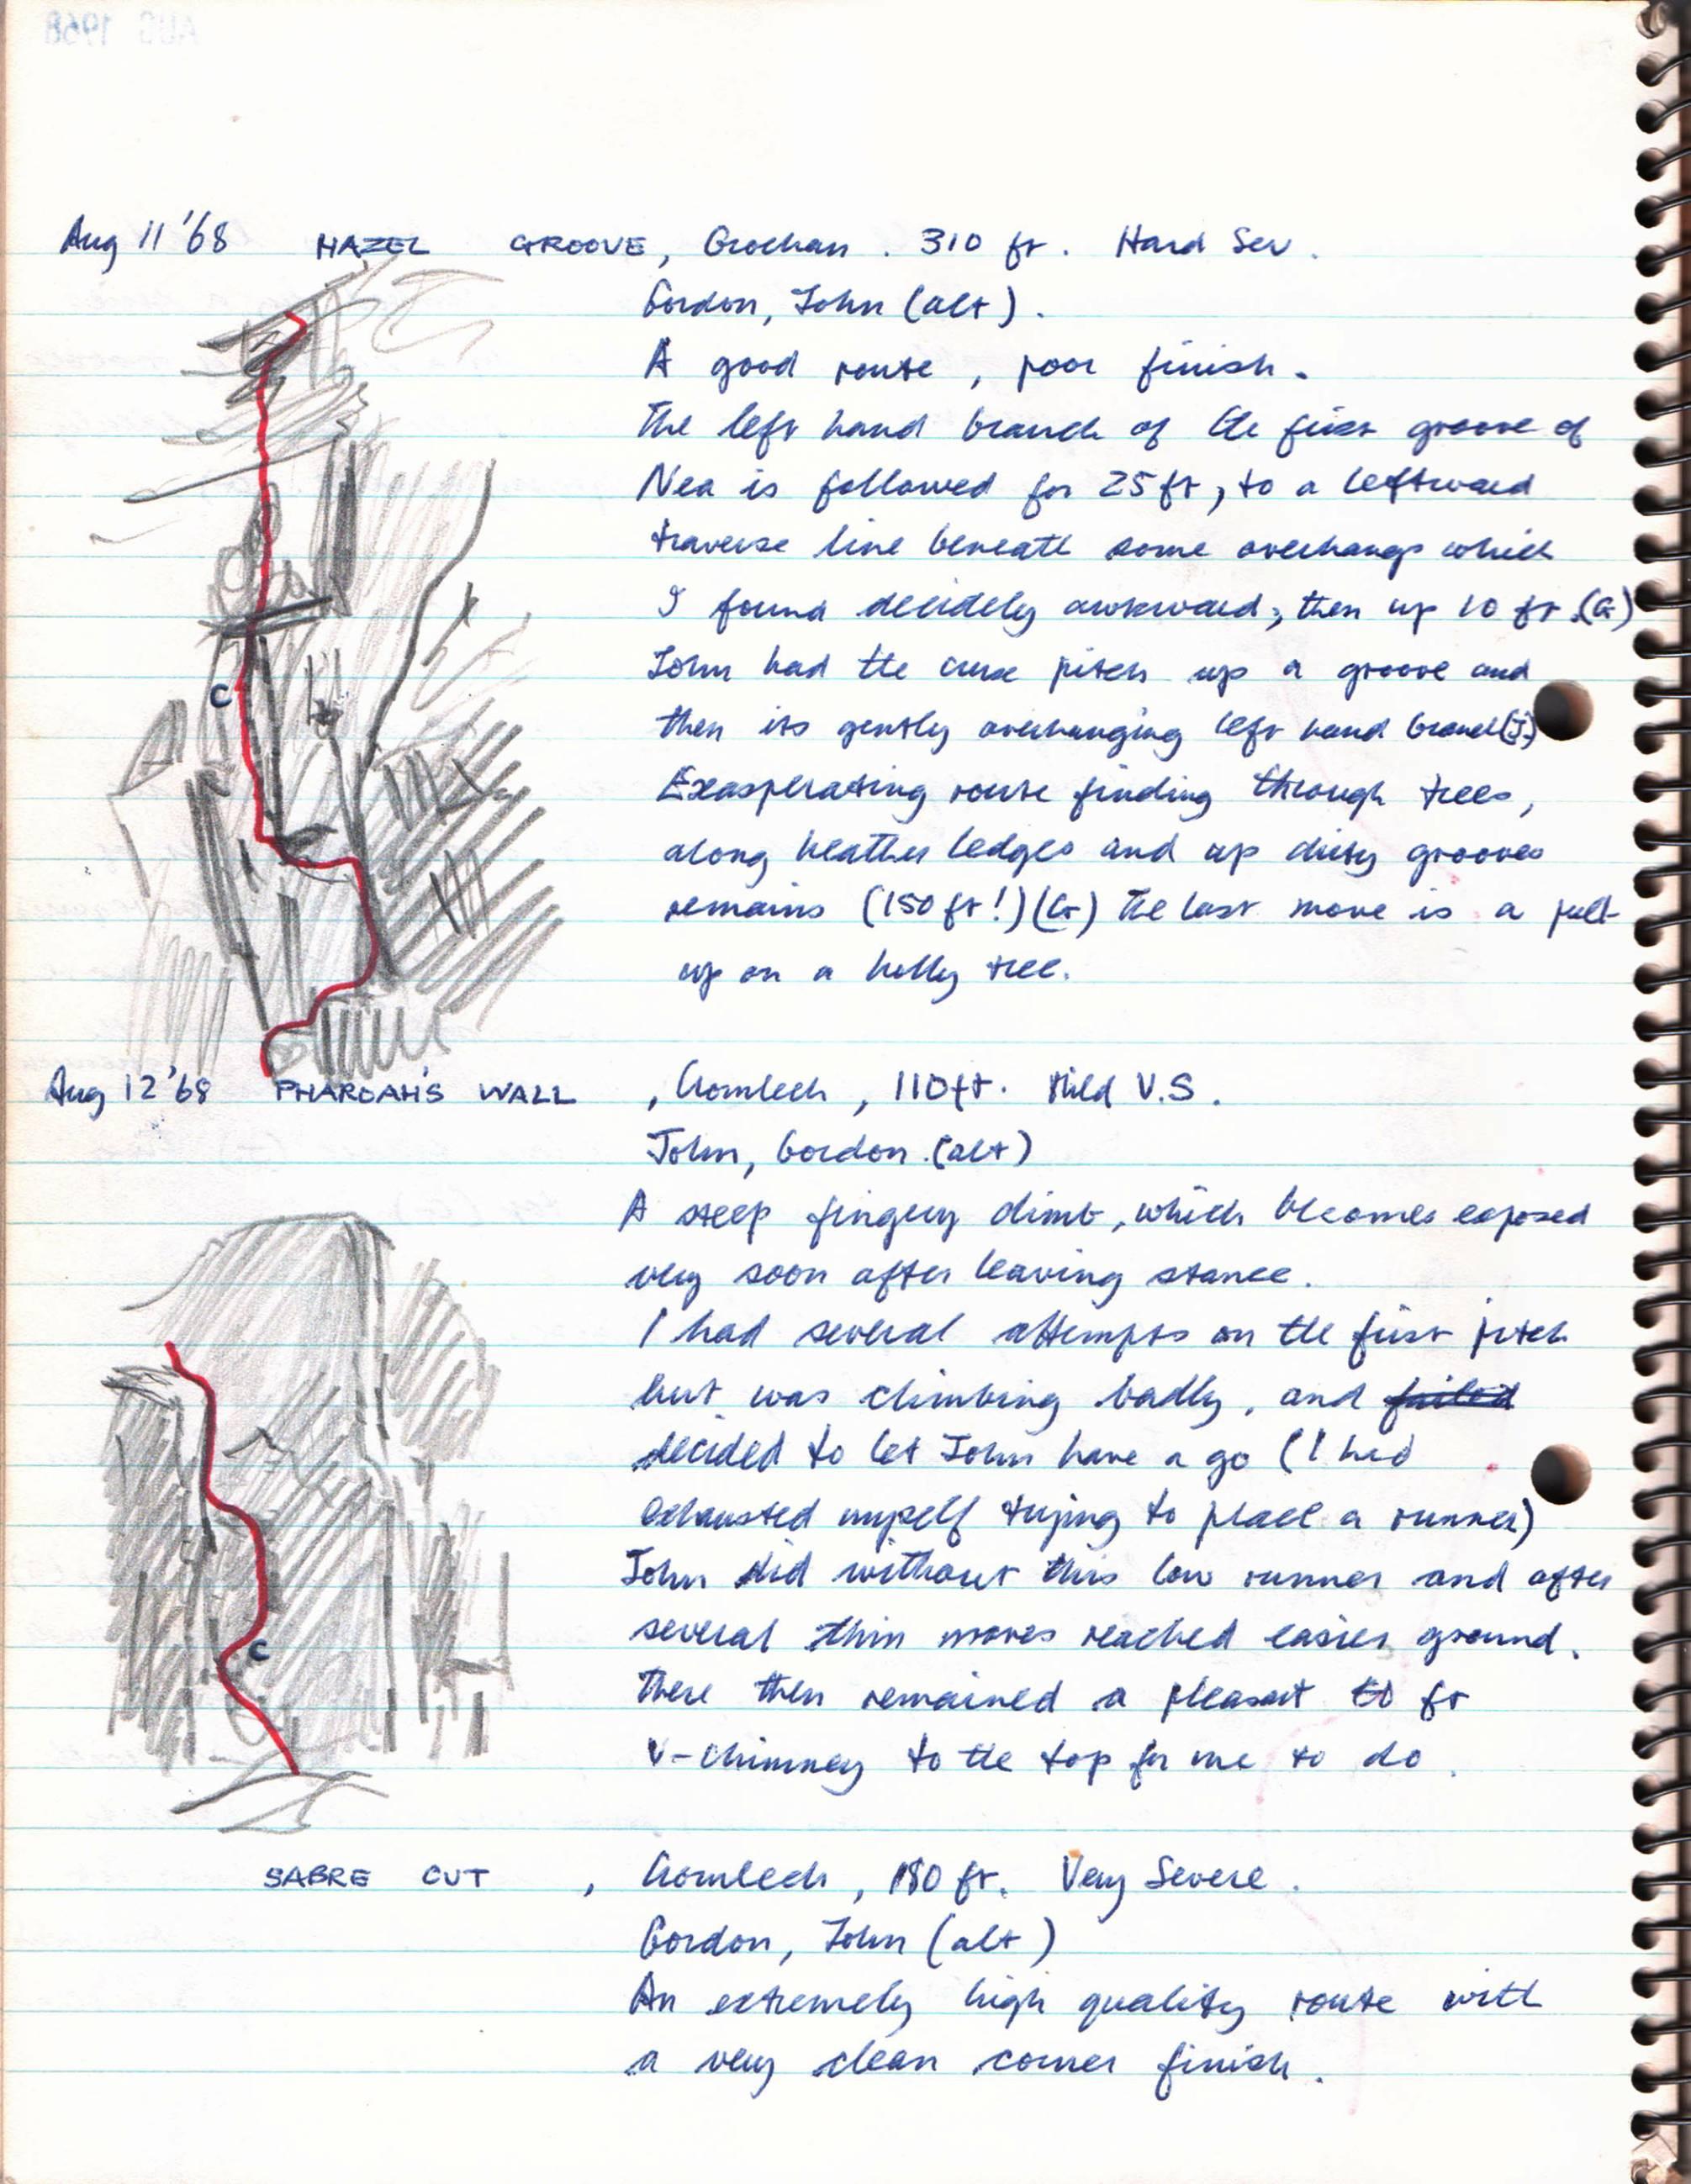 AUG 1968
Aug 11 '68 HAZEL GROOVE, Grochan. 310 ft. Hard Sev.
Gordon, John (alt).
A good route, poor finish.
The left hand branch of the first groove of
Nea is followed for 25 ft, to a leftward
traverse line beneath some overhangs which
I found decidely awkward; then up 10 ft.(G)
John had the crux pitch up a groove and
then its gently overhanging left hand branch(J.)
Exasperating route finding through trees,
along heather ledges and up dirty grooves
remains (150 ft!)(G) The last move is a pull
up on a holly tree.
C
Aug 12 '68 PHAROAH'S WALL, Cromlech, 110ft. Mild V.S.
John, Gordon.(alt)
A steep fingery climb, which becomes exposed
very soon after leaving stance.
I had several attempts on the first pitch
but was climbing badly, and failed
decided to let John have a go (I had
exhausted myself trying to place a runner)
John did without this low runner and after
several thin moves reached easier ground.
There then remained a pleasant ft
V-chimney to the top for me to do.
C
SABRE CUT, Cromlech, 180 ft. Very Severe.
Gordon, John (alt)
An extremely high quality route with
a very clean corner finish.